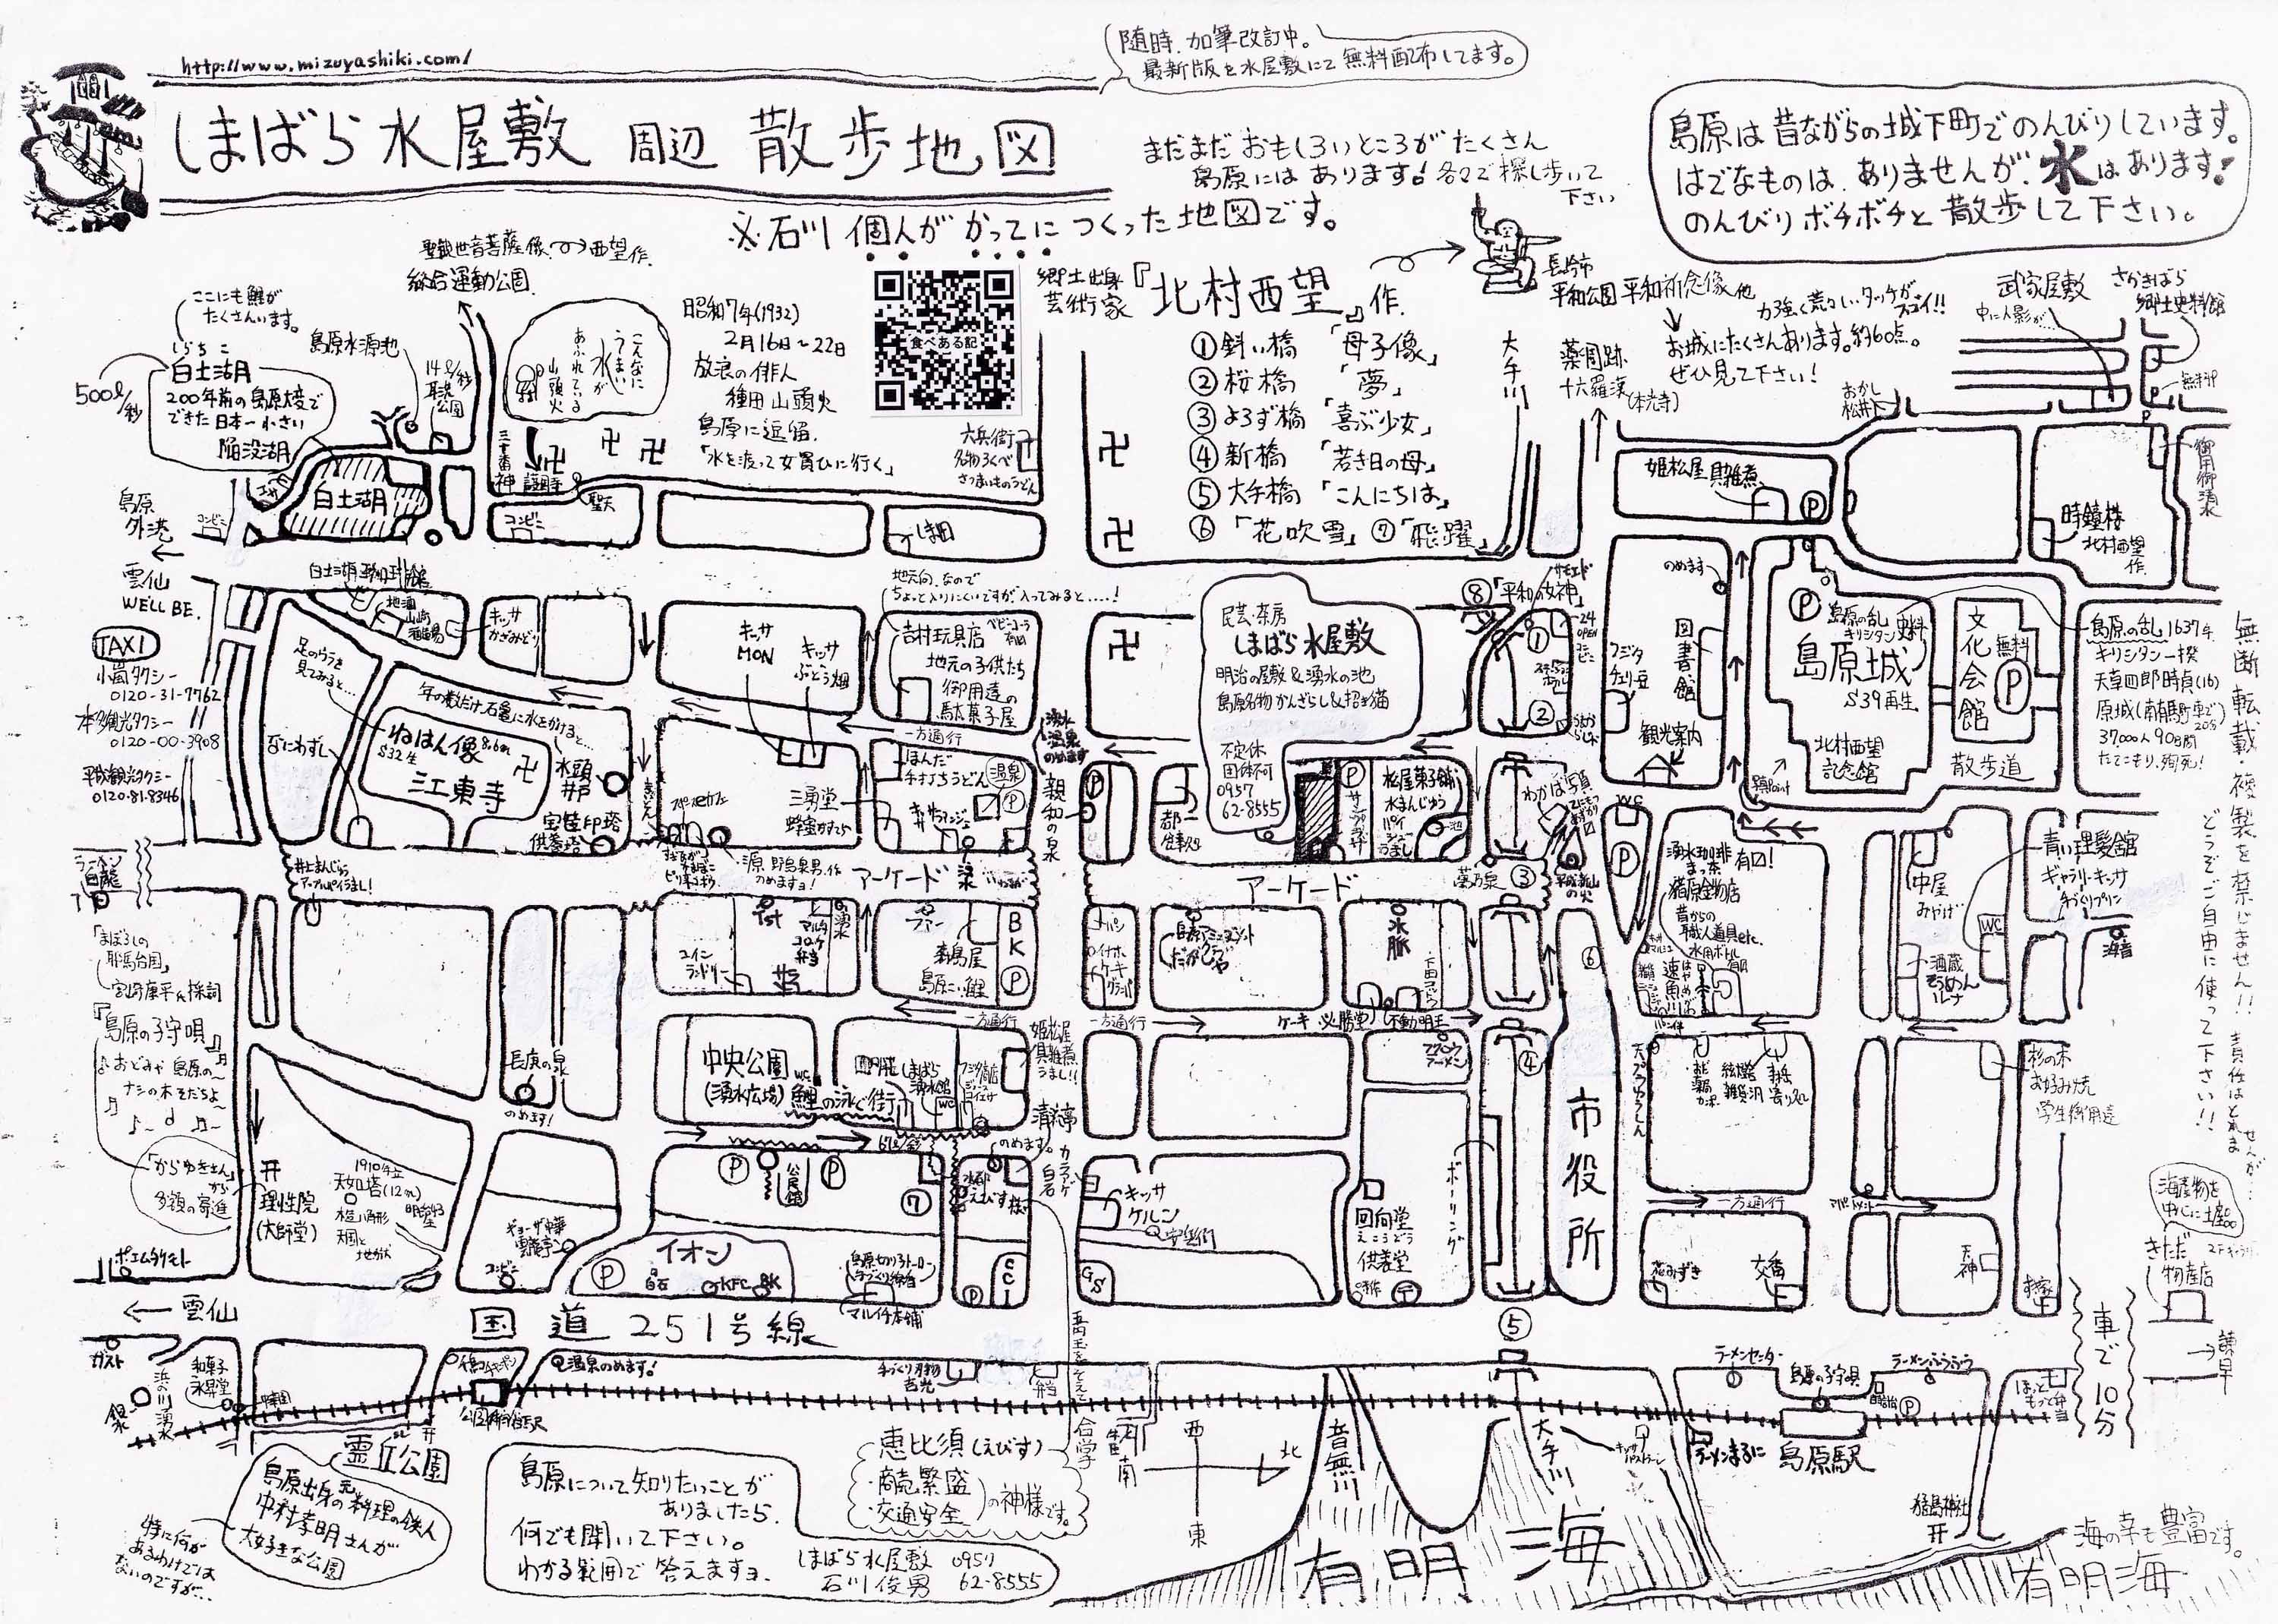 http://www.mizuyashiki.com/
しまばら水屋敷 周辺 散歩地図
随時、加筆改訂中。
最新版を水屋敷にて無料配布してます。
まだまだおもしろいところがたくさん
島原にはあります!各々で探し歩いて
下さい
※石川個人がかってにつくった地図です。
島原は昔ながらの城下町でのんびりしています。
はでなものは、ありませんが、水はあります!
のんびりボチボチと散歩して下さい。
総合運動公園
ここにも鯉が
たくさんいます。
島原水源池
500ℓ/秒
しらちこ
白土湖
200年前の島原大変で
できた日本一小さい
陥没湖
14ℓ/秒
こんなに
うまい
水が
あふれている
山頭火
昭和7年(1932)
2月16日~22日
放浪の俳人
種田山頭火
島原に逗留。
「水を渡って女買ひに行く」
食べある記
郷土出身
芸術家
『北村西望』作.
①斜い橋 「母子像」
②桜橋 「夢」
③よろず橋 「喜ぶ少女」
④新橋 「若き日の母」
⑤大手橋 「こんにちは」
⑥「花吹雪」⑦「飛躍」
⑧「平和の女神」
長崎市
平和公園 平和祈念像 他
力強く荒々しいタッチが
スゴイ!!
お城にたくさんあります。約60点。
ぜひ見て下さい!
大手川
薬園跡
十六羅漢(本光寺)
武家屋敷
中に人影が…
さかきばら
郷土史料館
無料P
おかし
松井
六兵衛
名物ろくべ
さつまいものうどん
三十番神
護国寺
聖天
白土湖
島原
外港
コンビニ
コンビニ
しま田
姫松屋 具雑煮
P
御用御清水
時鐘楼
北村西望
作
雲仙
WE'LL BE.
TAXI
小嵐タクシー
0120-31-7762
本多観光タクシー
0120-00-3908
平成観光タクシー
0120-81-8346
地酒
山崎
酒造場
キッサ
かざみどり
足のウラを
見てみると…
なにわずし
年の数だけ石亀に水をかけると…
ねはん像 8.6m
S32生
江東寺
水頭
井戸
宝筺印塔
供養塔
キッサ
MON
キッサ
ぶどう畑
地元向なので
ちょっと入りにくいですが入ってみると……!
吉村玩具店
地元の子供たち
御用達の
駄菓子屋
一方通行
ほんだ
手打ちうどん
温泉
P
三勇堂
蜂蜜かすてら
湧水
温泉
のめます
親和の泉
民芸・茶房
しまばら水屋敷
明治の屋敷&湧水の池
島原名物かんざらし&招き猫
不定休
団体不可
0957
62-8555
松屋菓子舗
水まんじゅう
パイ
シュー
うまし
24
OPEN
コンビニ
のめます
図書館
観光案内
WC
P
島原の乱
キリシタン史料
島原城
S39再生
北村西望
記念館
文化会館
無料
P
散歩道
島原の乱 1637年
キリシタン一揆
天草四郎時貞(16)
37000人 90日間
たてこもり、殉死!
無断転載・複製を禁じません!!
どうぞご自由に使って下さい!!
ラーメン
白龍
アーケード
アーケード
わかば写真
平成新山
の火
湧水珈琲
猪原金物店
昔からの
職人道具etc.
中屋
みやげ
青い理髪館
ギャラリーキッサ
手づくりプリン
WC
海音
「まぼろしの
邪馬台国」
宮崎康平氏採詞
『島原の子守唄』
おどみゃ島原の~
ナシの木そだちよ~
コイン
ランドリー
コロッケ
弁当
森島屋
島原こい鯉
BK
P
水脈
不動明王
速魚川
長庚の泉
のめます!
中央公園
(湧水広場)
WC
鯉の泳ぐ街
しまばら
湧水館
WC
姫松屋
具雑煮
うまし!!
清流亭
一方通行
一方通行
④
市役所
杉の木
お好み焼
学生御用達
「からゆきさん」
から
多額の寄進
理性院
(大師堂)
1910年立
天如塔(12m)
ギョーザ中華
コンビニ
ポエムタルト
P
公民館
P
⑦
のめます。
水都
えびす様
カラオケ
白石
キッサ
ケルン
回向堂
えこうどう
供養堂
ボーリング
一方通行
花みずき
交番
天神
海産物を
中心に土産
きただ
物産店
イオン
P
白石
KFC
BK
マルイチ本舗
P
GS
←雲仙
国道251号線
⑤
車で10分
諫早
ガスト
和菓子
永昇堂
浜の川湧水
銀水
温泉のめます!
手づくり刃物
吉光
弁当
ラーメンセンター
島原の子守唄
P
ラーメンまるに
島原駅
霊丘公園
島原出身の元料理の鉄人
中村孝明さんが
大好きな公園
特に何が
あるわけでは
ないのですが…
島原について知りたいことが
ありましたら、
何でも聞いて下さい。
わかる範囲で答えますヨ.
しまばら水屋敷 0957
石川俊男 62-8555
恵比須(えびす)
・商売繁盛
・交通安全
の神様です。
西
南
北
東
音無川
大手川
有明海
猛島神社
海の幸も豊富です。
有明海